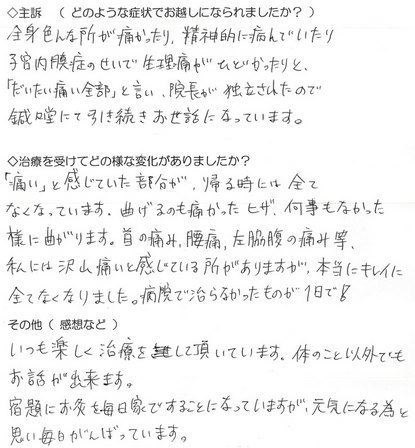 ◇主訴 （ どのような症状でお越しになられましたか？ ）
全身色んな所が痛かったり、精神的に病んでいたり
子宮内膜症のせいで生理痛がひどかったりと、
「だいたい痛い全部」と言い、院長が独立されたので
鍼門堂にて引き続きお世話になっています。
◇治療を受けてどの様な変化がありましたか？
「痛い」と感じていた部分が、帰る時には全て
なくなっています。曲げるのも痛かったヒザ、何事もなかった
様に曲がります。首の痛み、腰痛、左脇腹の痛み等、
私には沢山痛いと感じている所がありますが、本当にキレイに
全てなくなりました。病院で治らなかったものが1日で!!
その他（ 感想など ）
いつも楽しく治療をして頂いています。体のこと以外でも
お話が出来ます。
宿題にお灸を毎日家ですることになっていますが、元気になる為と
思い毎日がんばっています。